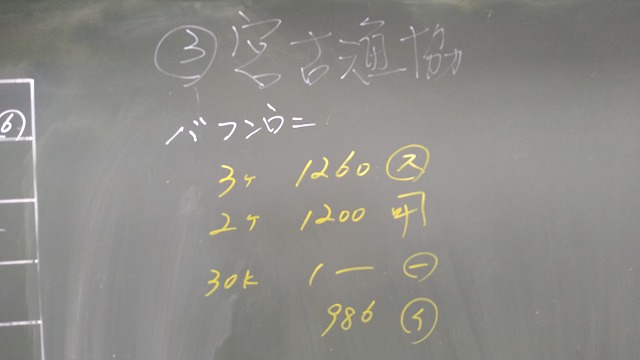 ③宮古漁協
⑥
バフンウニ
3ケ 1260 ㋜
2ケ 1200
30K 1一 ㊀
986 ㋑